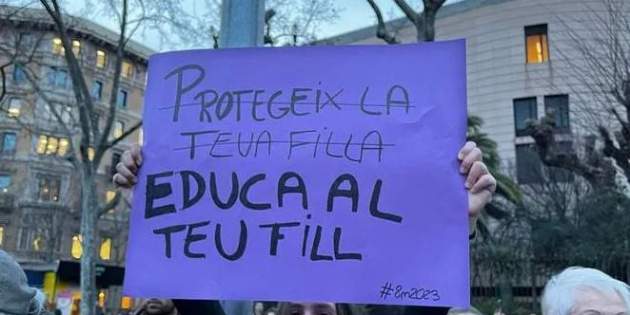 PROTEGEIX LA
TEVA FILLA
EDUCA AL
TEU FILL
#8m2023